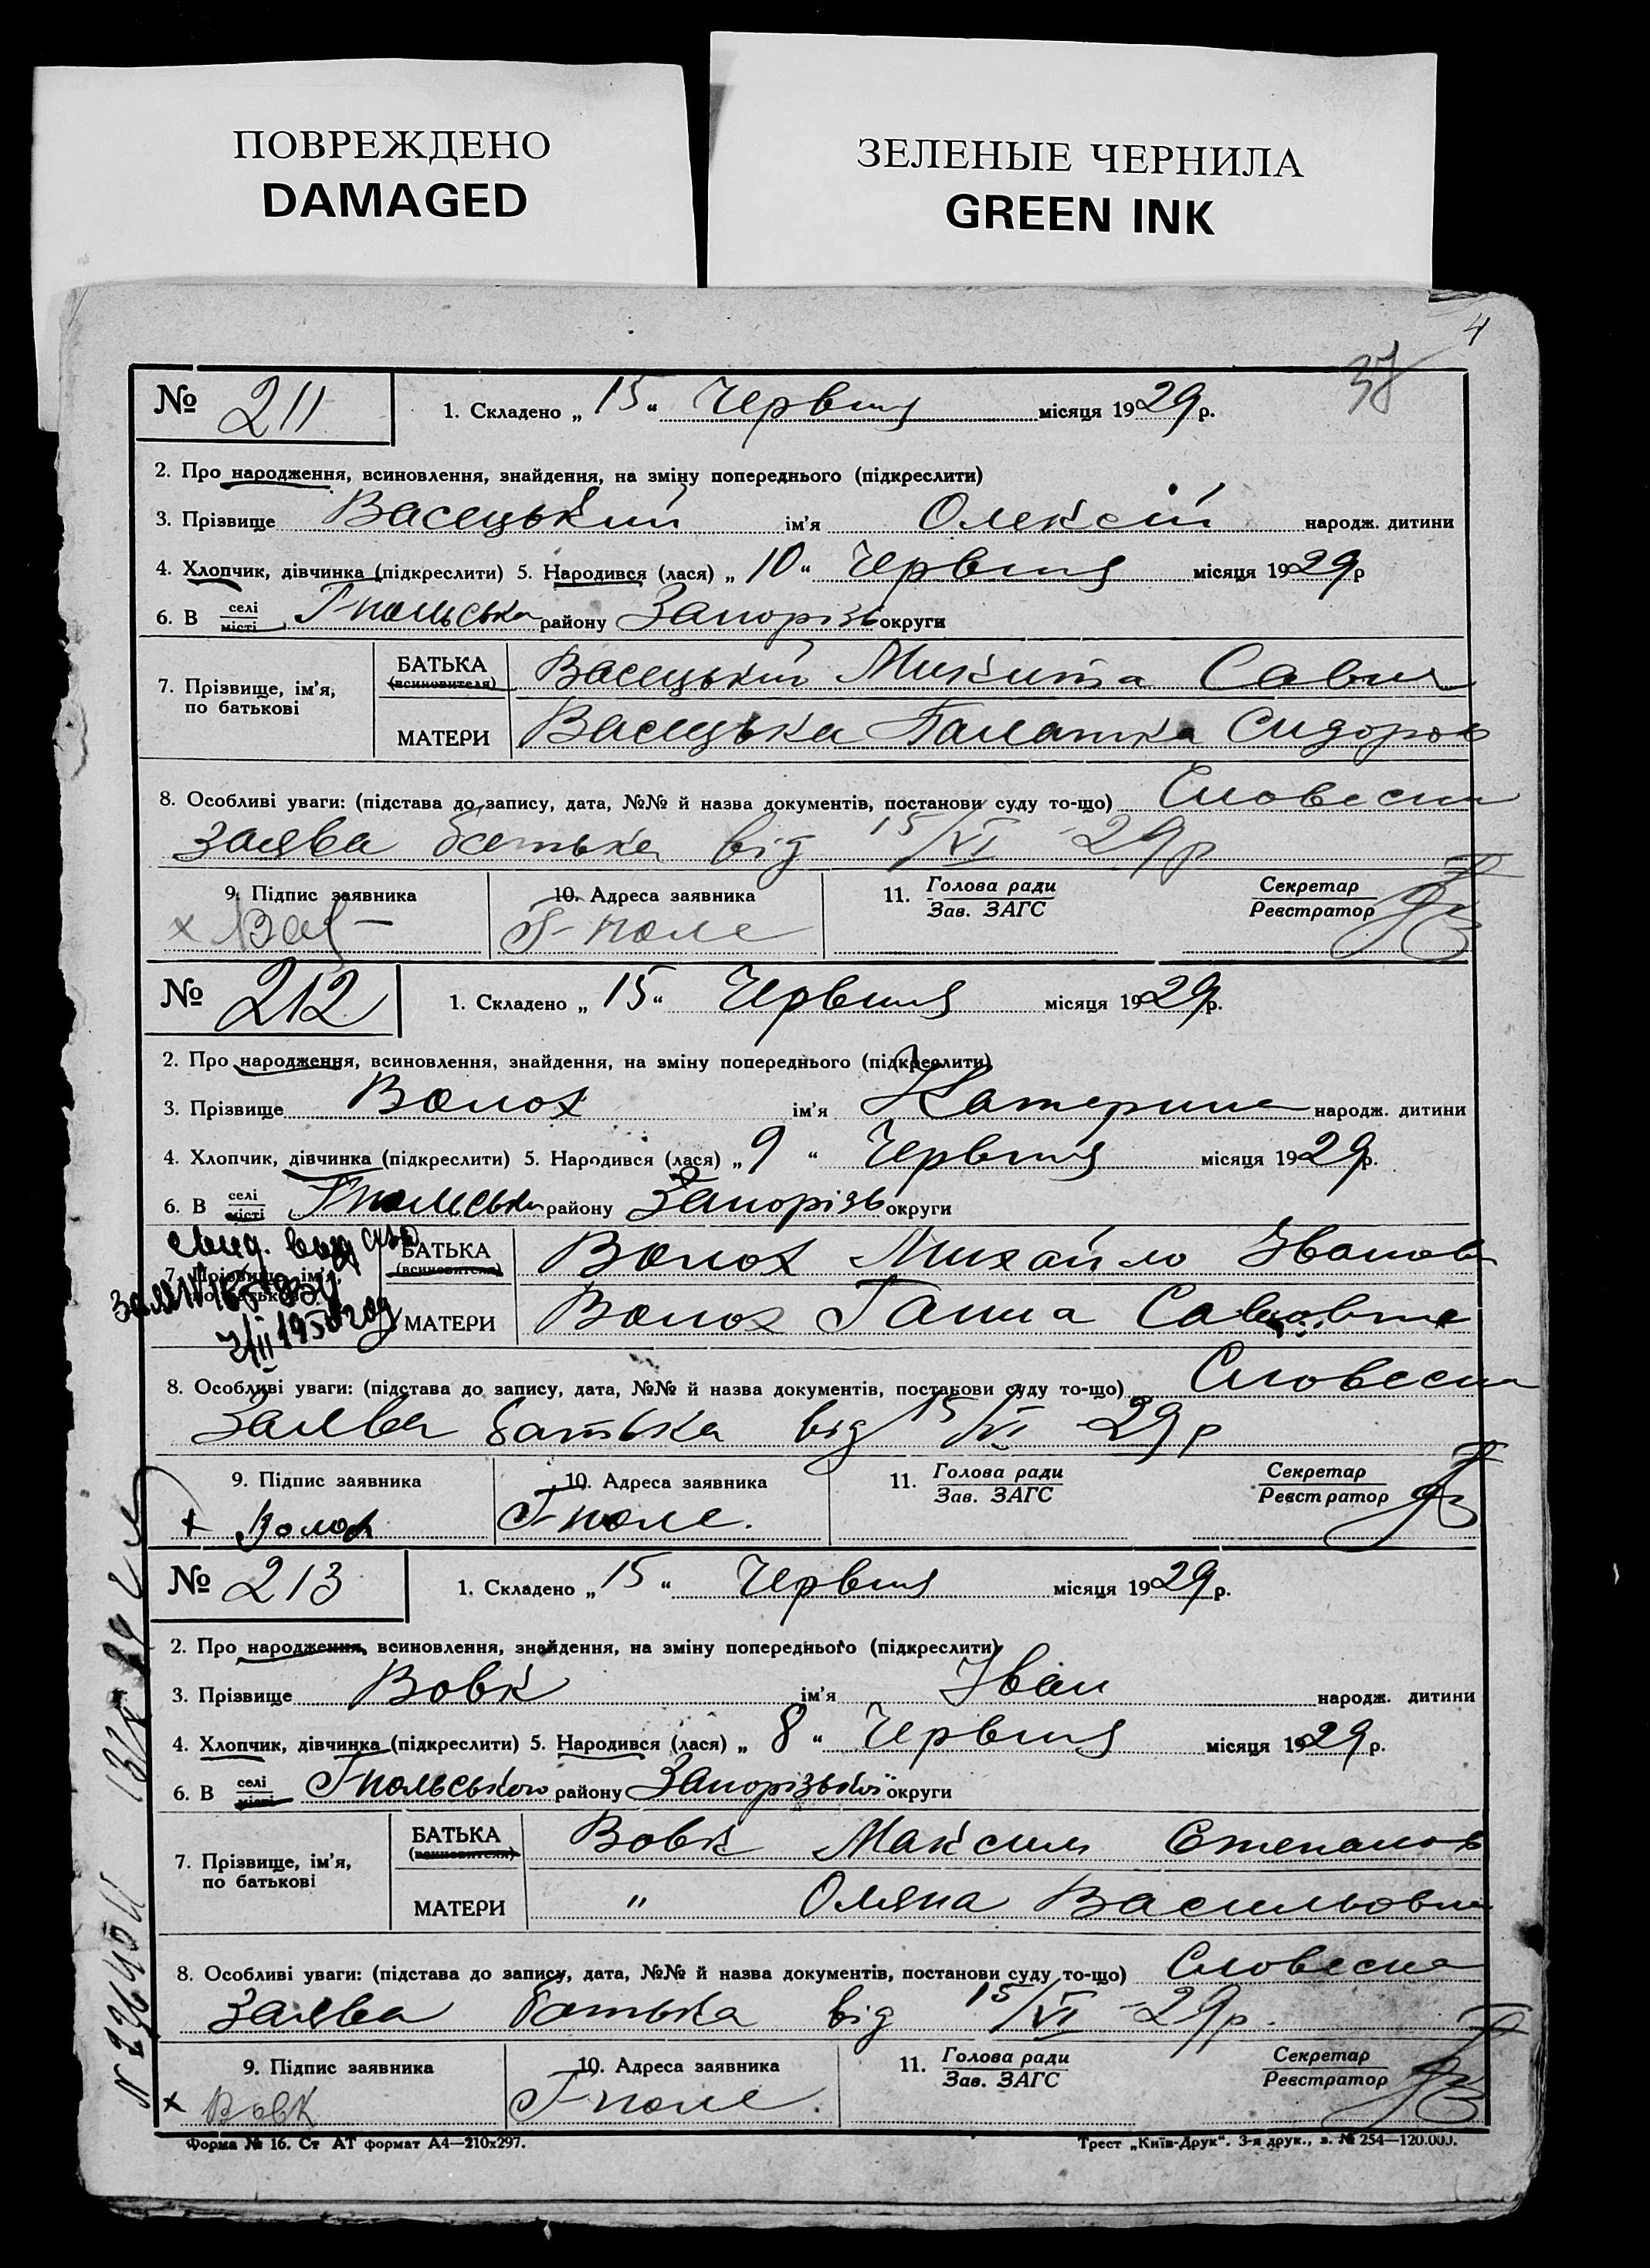 ПОВРЕЖДЕНО
DAMAGED
ЗЕЛЕНЫЕ ЧЕРНИЛА
GREEN INK
4
№ 211
1. Складено „ 15 “ Червня місяця 1929 р.
2. Про народження, всиновлення, знайдення, на зміну попереднього (підкреслити)
3. Прізвище Васецький ім'я Олексій народж. дитини
4. Хлопчик, дівчинка (підкреслити) 5. Народився (лася) „ 10 “ Червня місяця 1929 р
6. В селі місті Г-польська району Запорізь округи
7. Прізвище, ім'я, по батькові
БАТЬКА (всиновителя) Васецький Микита Савич
МАТЕРИ Васецька Палашка Сидоров
8. Особливі уваги: (підстава до запису, дата, №№ й назва документів, постанови суду то-що) Словесна
заява батька від 15/VI 29 р
9. Підпис заявника 10. Адреса заявника 11. Голова ради Зав. ЗАГС Секретар Реєстратор
х Вас Г-поле
№ 212
1. Складено „ 15 “ Червня місяця 1929 р.
2. Про народження, всиновлення, знайдення, на зміну попереднього (підкреслити)
3. Прізвище Волох ім'я Катерина народж. дитини
4. Хлопчик, дівчинка (підкреслити) 5. Народився (лася) „ 9 “ Червня місяця 1929 р.
6. В селі місті Г-польська району Запорізь округи
7. Прізвище, ім'я, по батькові
БАТЬКА (всиновителя) Волох Михайло Іванов
МАТЕРИ Волох Ганна Савовна
8. Особливі уваги: (підстава до запису, дата, №№ й назва документів, постанови суду то-що) Словесна
Заява батька від 15/VI 29 р
9. Підпис заявника 10. Адреса заявника 11. Голова ради Зав. ЗАГС Секретар Реєстратор
х Волох Г-поле.
№ 213
1. Складено „ 15 “ Червня місяця 1929 р.
2. Про народження, всиновлення, знайдення, на зміну попереднього (підкреслити)
3. Прізвище Вовк ім'я Іван народж. дитини
4. Хлопчик, дівчинка (підкреслити) 5. Народився (лася) „ 8 “ Червня місяця 1929 р.
6. В селі місті Г-польського району Запорізької округи
7. Прізвище, ім'я, по батькові
БАТЬКА (всиновителя) Вовк Максим Степанов
МАТЕРИ " Оляна Васильовна
8. Особливі уваги: (підстава до запису, дата, №№ й назва документів, постанови суду то-що) Словесна
Заява батька від 15/VI 29 р.
9. Підпис заявника 10. Адреса заявника 11. Голова ради Зав. ЗАГС Секретар Реєстратор
х Вовк Г-поле.
Форма № 16. Ст АТ формат А4—210х297.
Трест „Київ-Друк“. 3-я друк., з. № 254—120.000.